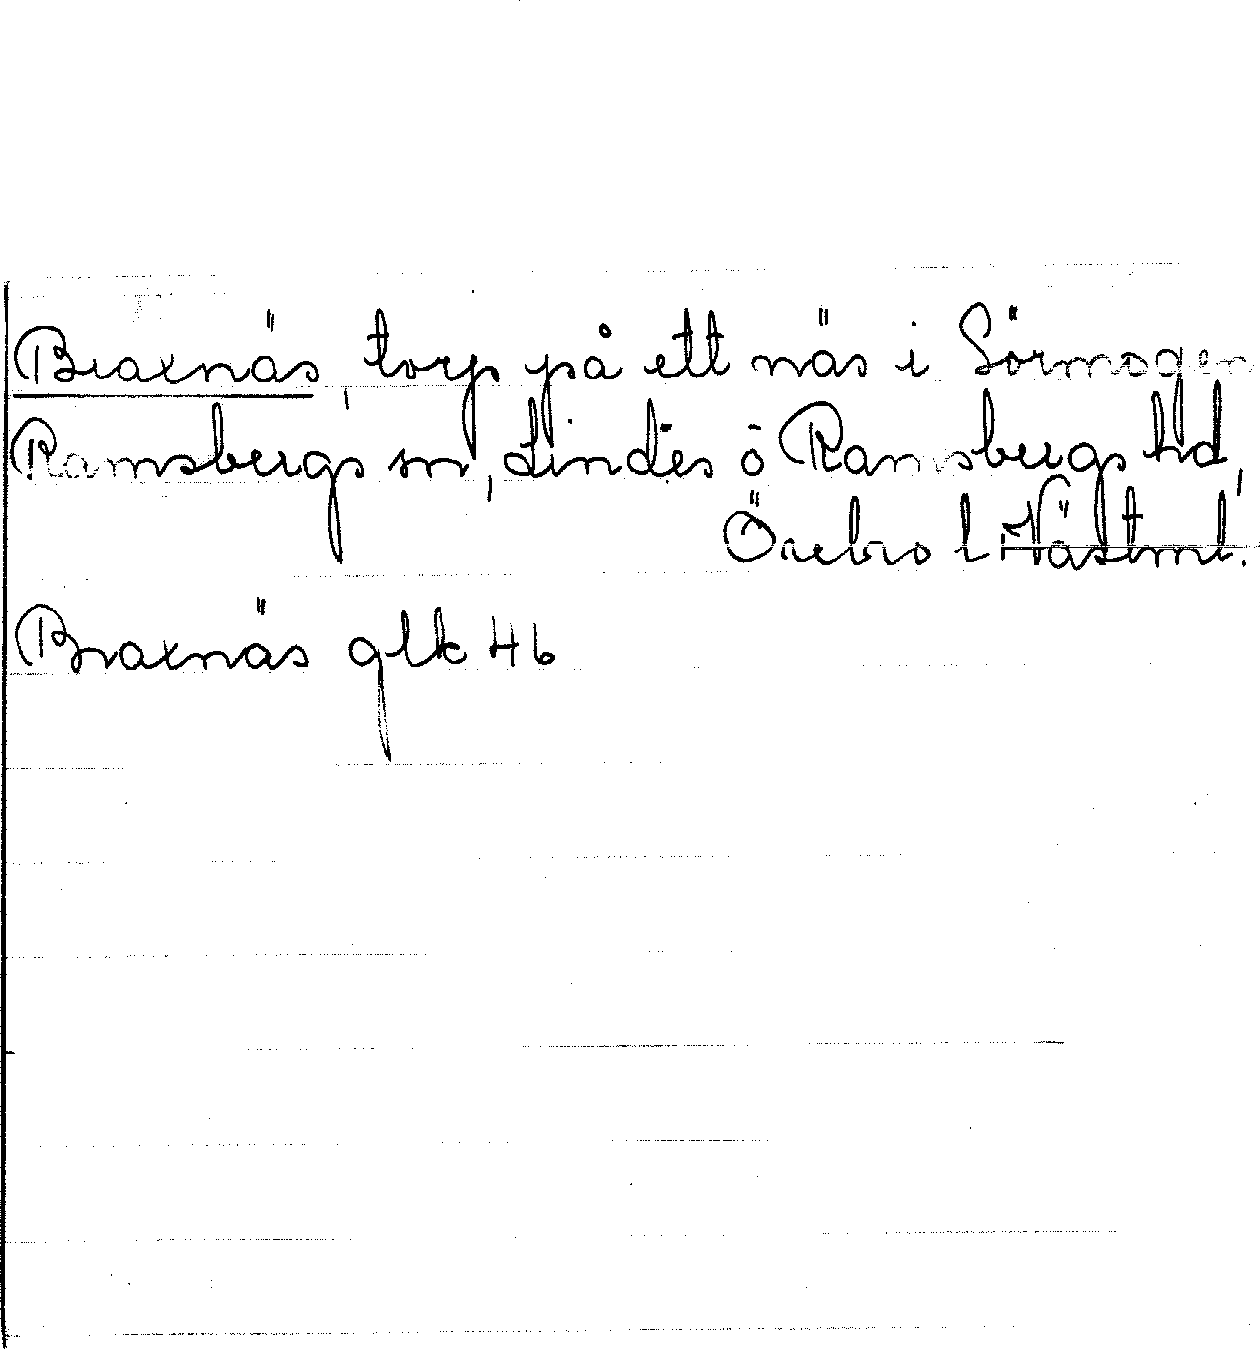 Braxnäs, torp på ett näs i Sörmogen
Ramsbergs sn, Lindes o Ramsbergs hd,
Örebro l. Västml.
Braxnäs glk 46